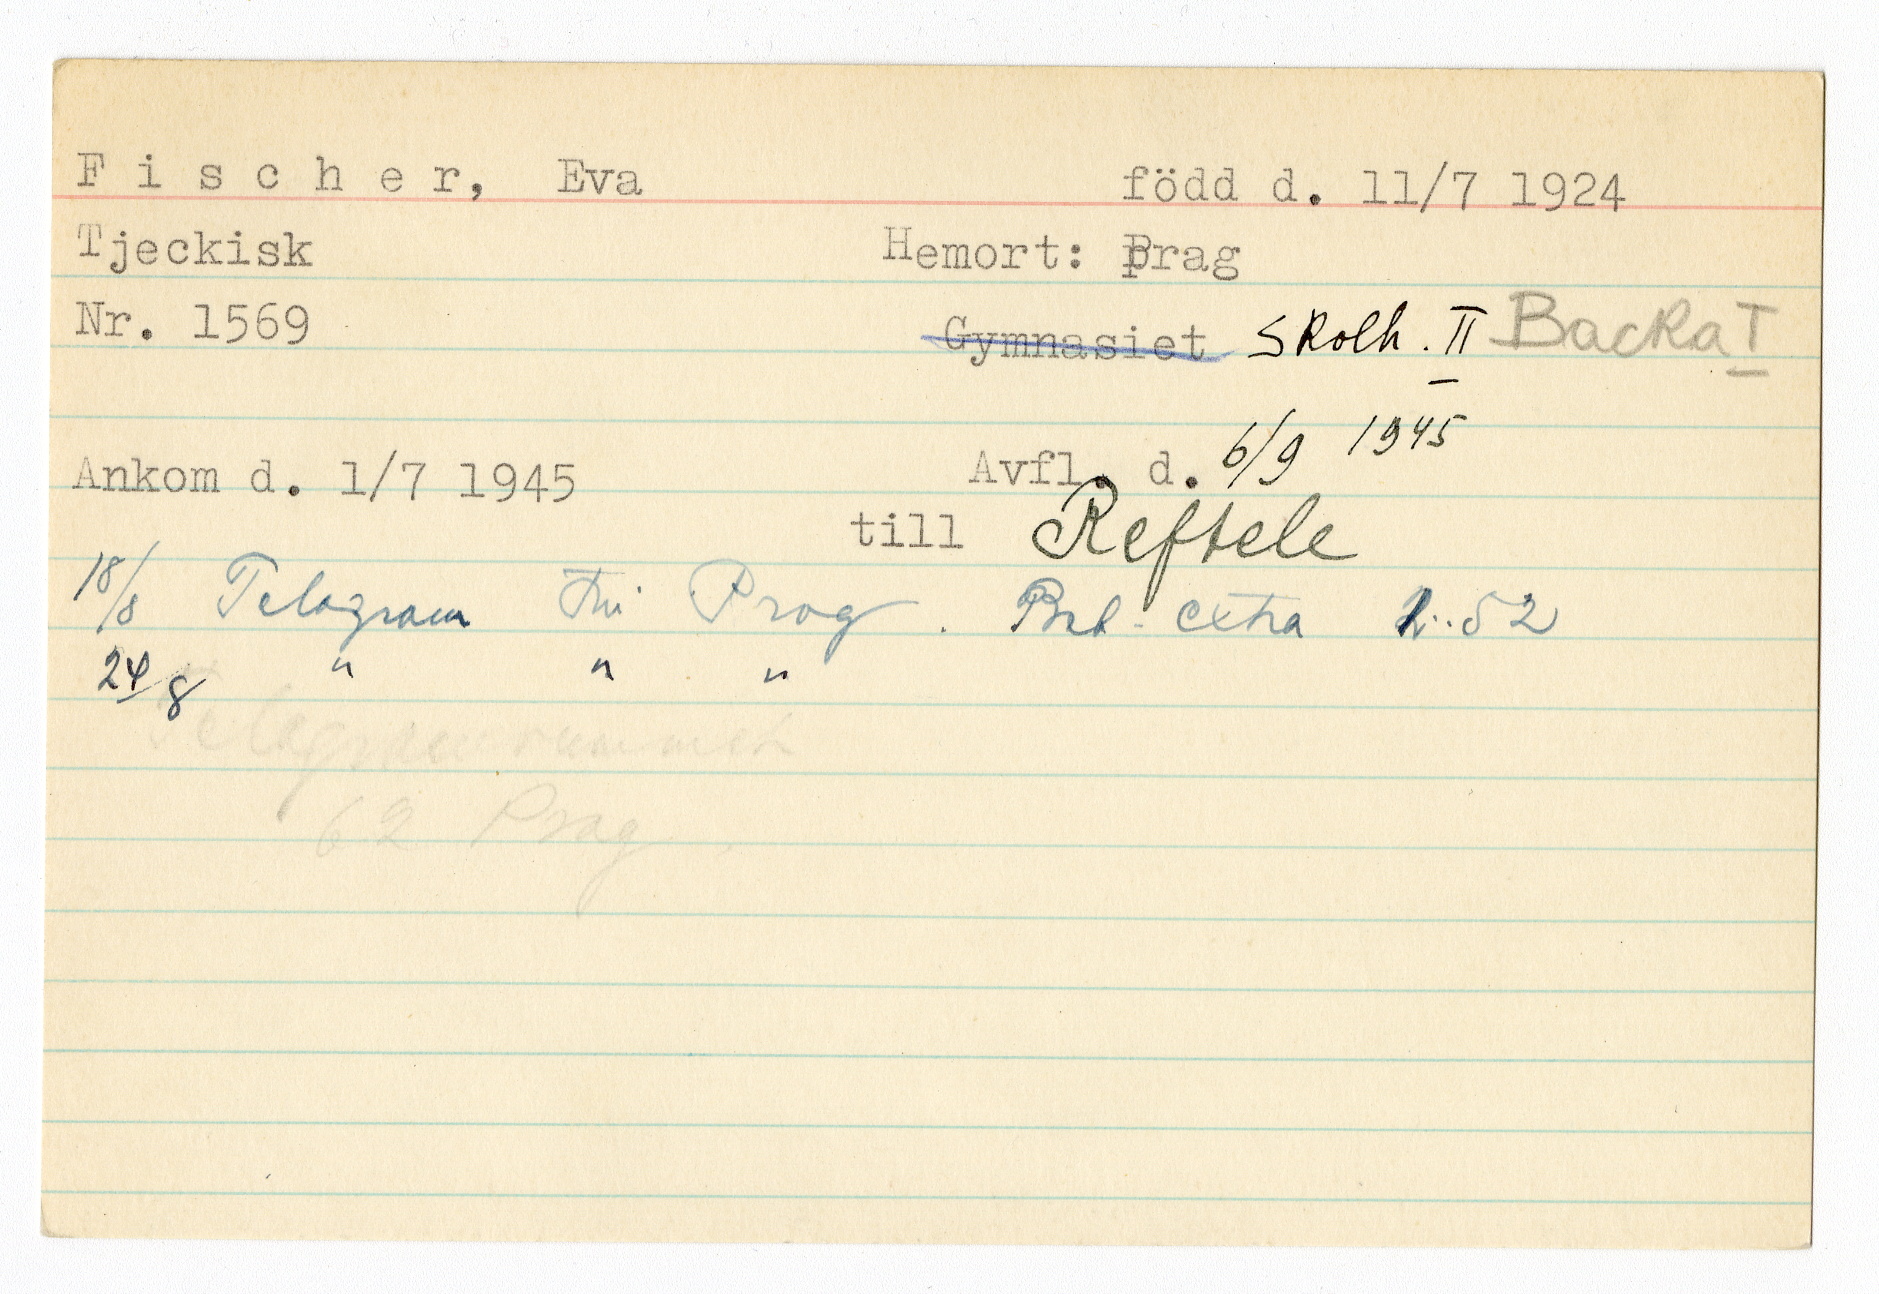 Fischer, Eva född d. 11/7 1924
Tjeckisk Hemort: Prag
Nr. 1569 Gymnasiet Skolh. II Backa I
Ankom d. 1/7 1945 Avfl. d. 6/9 1945
till Reftele
18/8 Telegram Prag. extra 52
24/8 " " "
Telegram
62 Prag